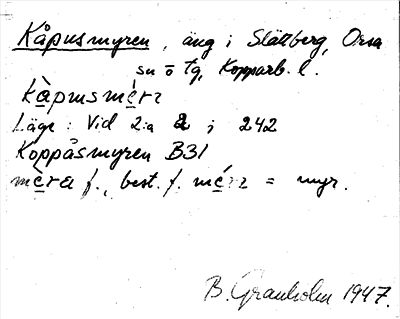 Kåpusmyren, äng i Slättberg, Orsa
sn o tg, Kopparb. l.
kàpmsmérr
Läge: Vid 2:a a i 242
Koppåsmyren B31
mèra f., best. f. mérr = myr.
B. Granholm 1947.